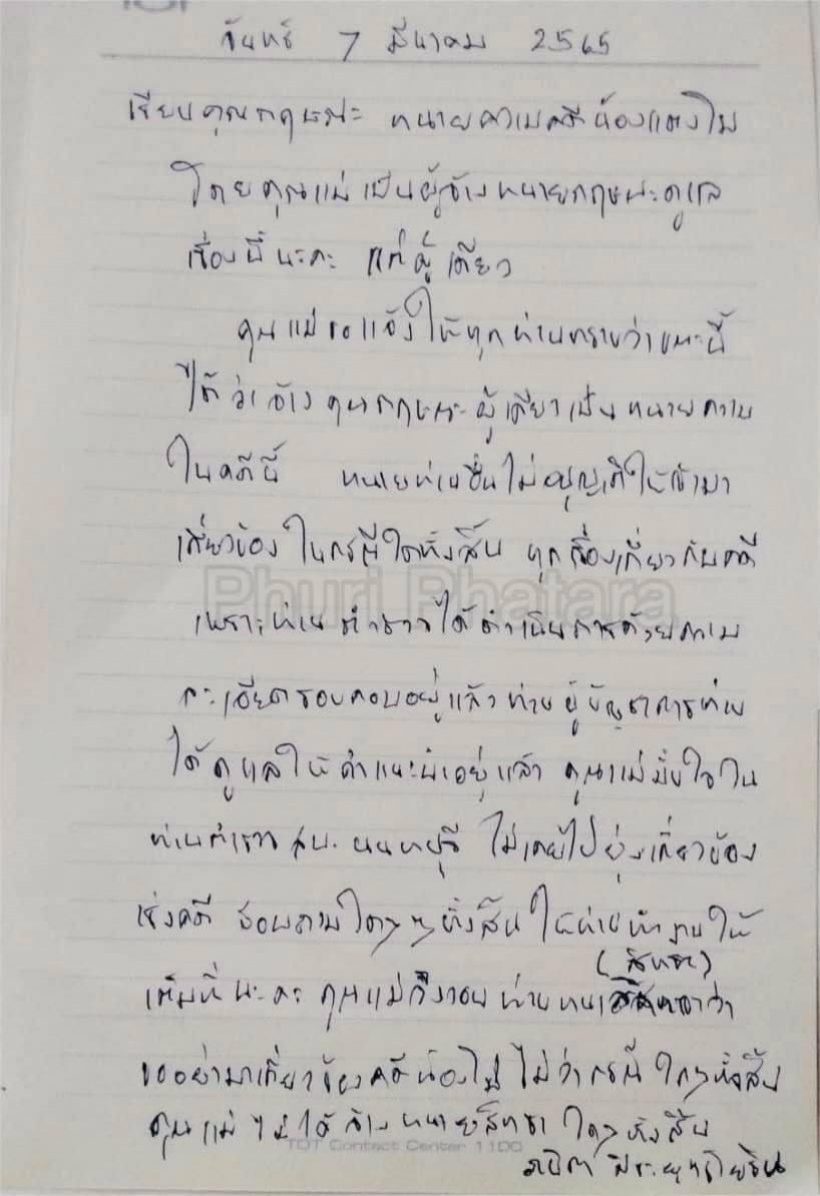 จันทร์ 7 มีนาคม 2565
เรียนคุณกฤษณะ ทนายความคดีน้องแตงโม
โดยคุณแม่เป็นผู้จ้างทนายกฤษณะดูแล
เรื่องนี้นะคะ แต่ผู้เดียว
คุณแม่ขอแจ้งให้ทุกท่านทราบว่าขณะนี้
ได้ว่าจ้างคุณกฤษณะผู้เดียวเป็นทนายความ
ในคดีนี้ ทนายท่านอื่นไม่อนุญาติให้เข้ามา
เกี่ยวข้องในกรณีใดทั้งสิ้น ทุกเรื่องเกี่ยวกับคดี
Phuri Phatara
เพราะท่านตำรวจได้ดำเนินการด้วยความ
ละเอียดรอบคอบอยู่แล้วท่านผู้บัญชาการท่าน
ได้ดูแลให้คำแนะนำอยู่แล้ว คุณแม่มั่นใจใน
ท่านตำรวจ สน. นนทบุรี ไม่เคยไปยุ่งเกี่ยวข้อง
เรื่องคดี สอบถามใดๆทั้งสิ้น ให้ท่านทำงานให้
(สิทธา)
เต็มที่นะคะ คุณแม่จึงวอนท่านทนายว่า
ขออย่ามาเกี่ยวข้องคดีน้องโม ไม่ว่ากรณีใดๆทั้งสิ้น
คุณแม่ไม่ได้จ้างทนายสิทธา ใดๆทั้งสิ้น
TOT Contact Center 1100
ภนิดา